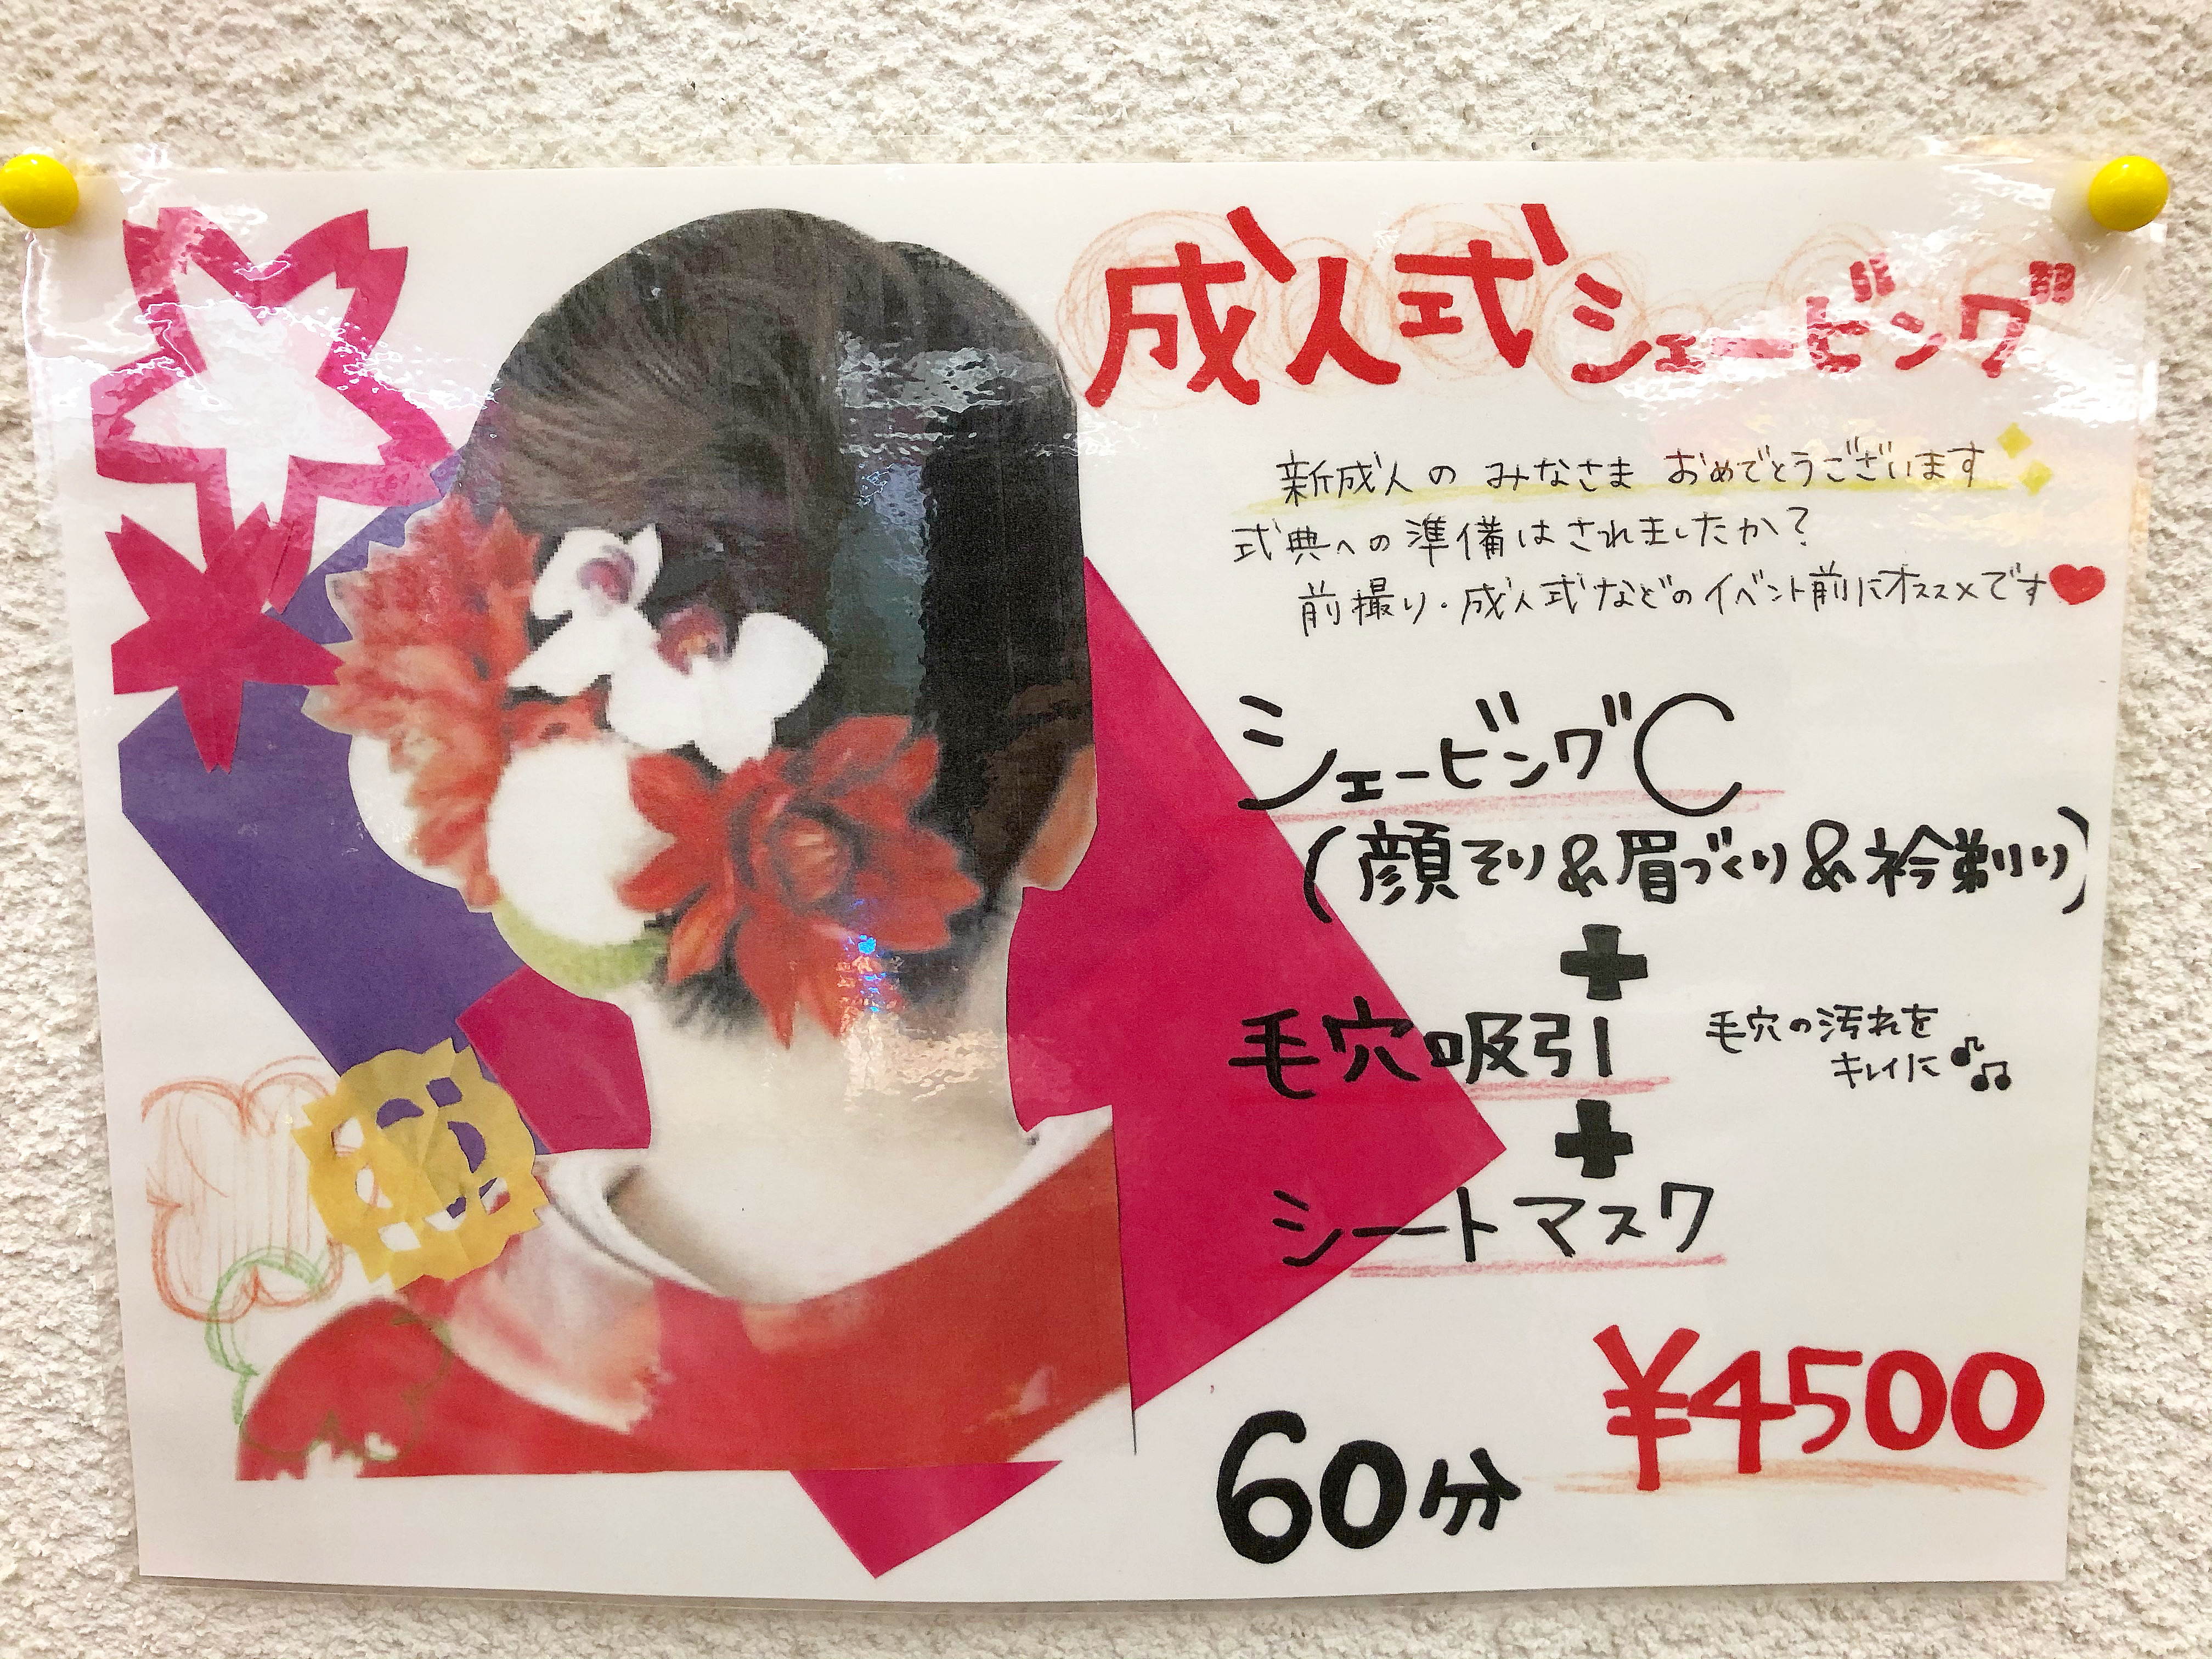 成人式シェービング
新成人の みなさま おめでとうございます
式典への準備はされましたか?
前撮り・成人式などのイベント前にオススメです
シェービングC
(顔そり&眉づくり&衿剃り)
+
毛穴吸引
毛穴の汚れを
キレイに
+
シートマスク
60分
¥4500